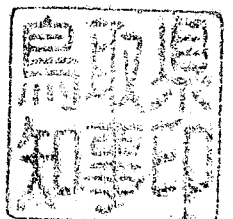 鳥取県
知事印